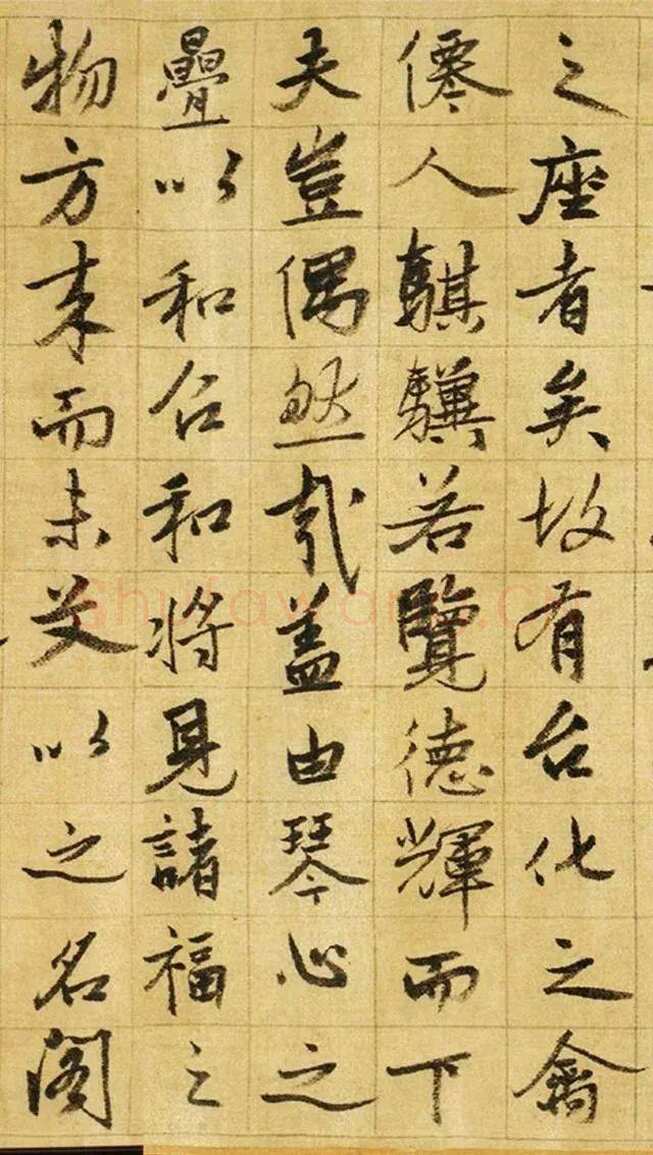 之座者矣故有台化之禽
僊人騏驥若覽德輝而下
夫豈偶然哉盖由琴心之
疊以和合和將見諸福之
物方来而未艾以之名閣